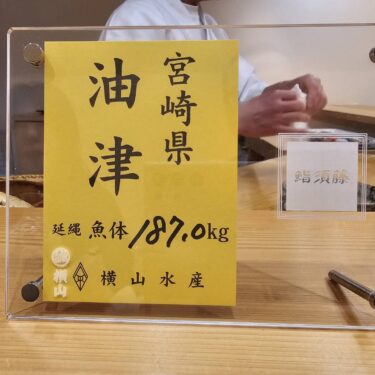 宮崎県
油津
延縄 魚体 187.0kg
横山水産
横山
鮨須藤